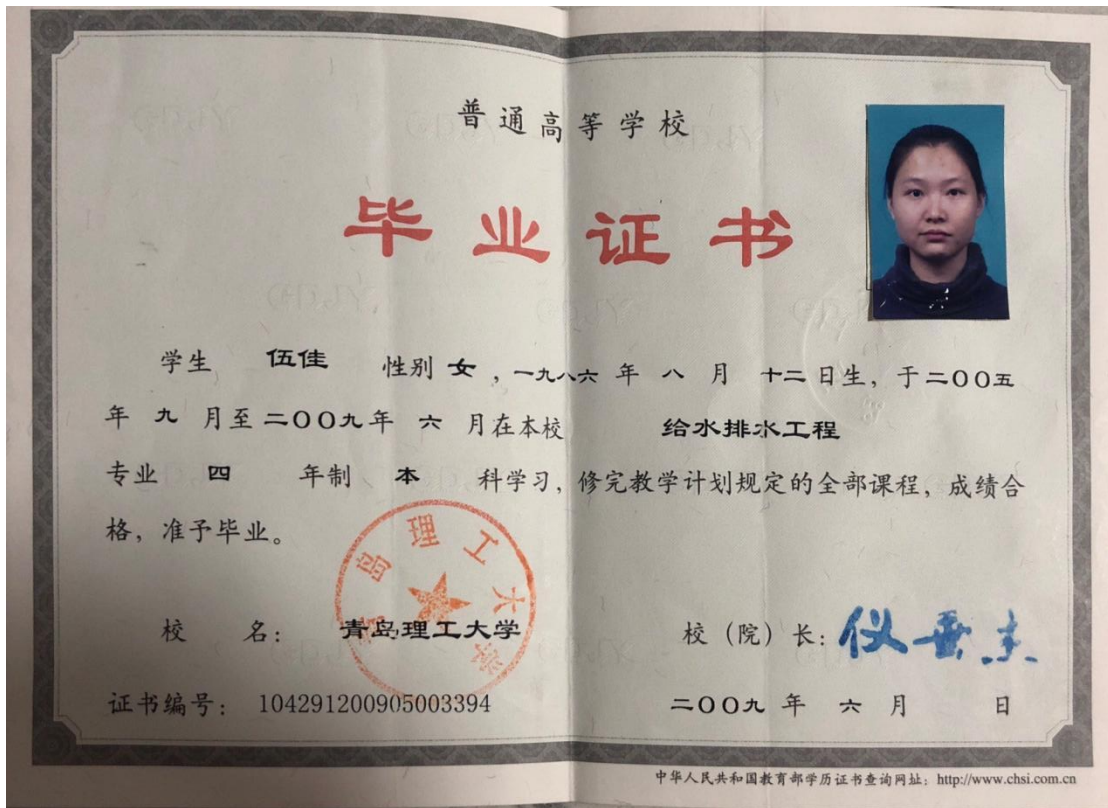 普通高等学校
毕业证书
学生 伍佳 性别 女，一九八六 年 八 月 十二 日生，于二00五
年 九 月至二00九年 六 月在本校 给水排水工程
专业 四 年制 本 科学习，修完教学计划规定的全部课程，成绩合
格，准予毕业。
青岛理工大学
校 名： 青岛理工大学 校（院）长：仪垂杰
证书编号： 104291200905003394 二00九 年 六 月 日
中华人民共和国教育部学历证书查询网址：http://www.chsi.com.cn